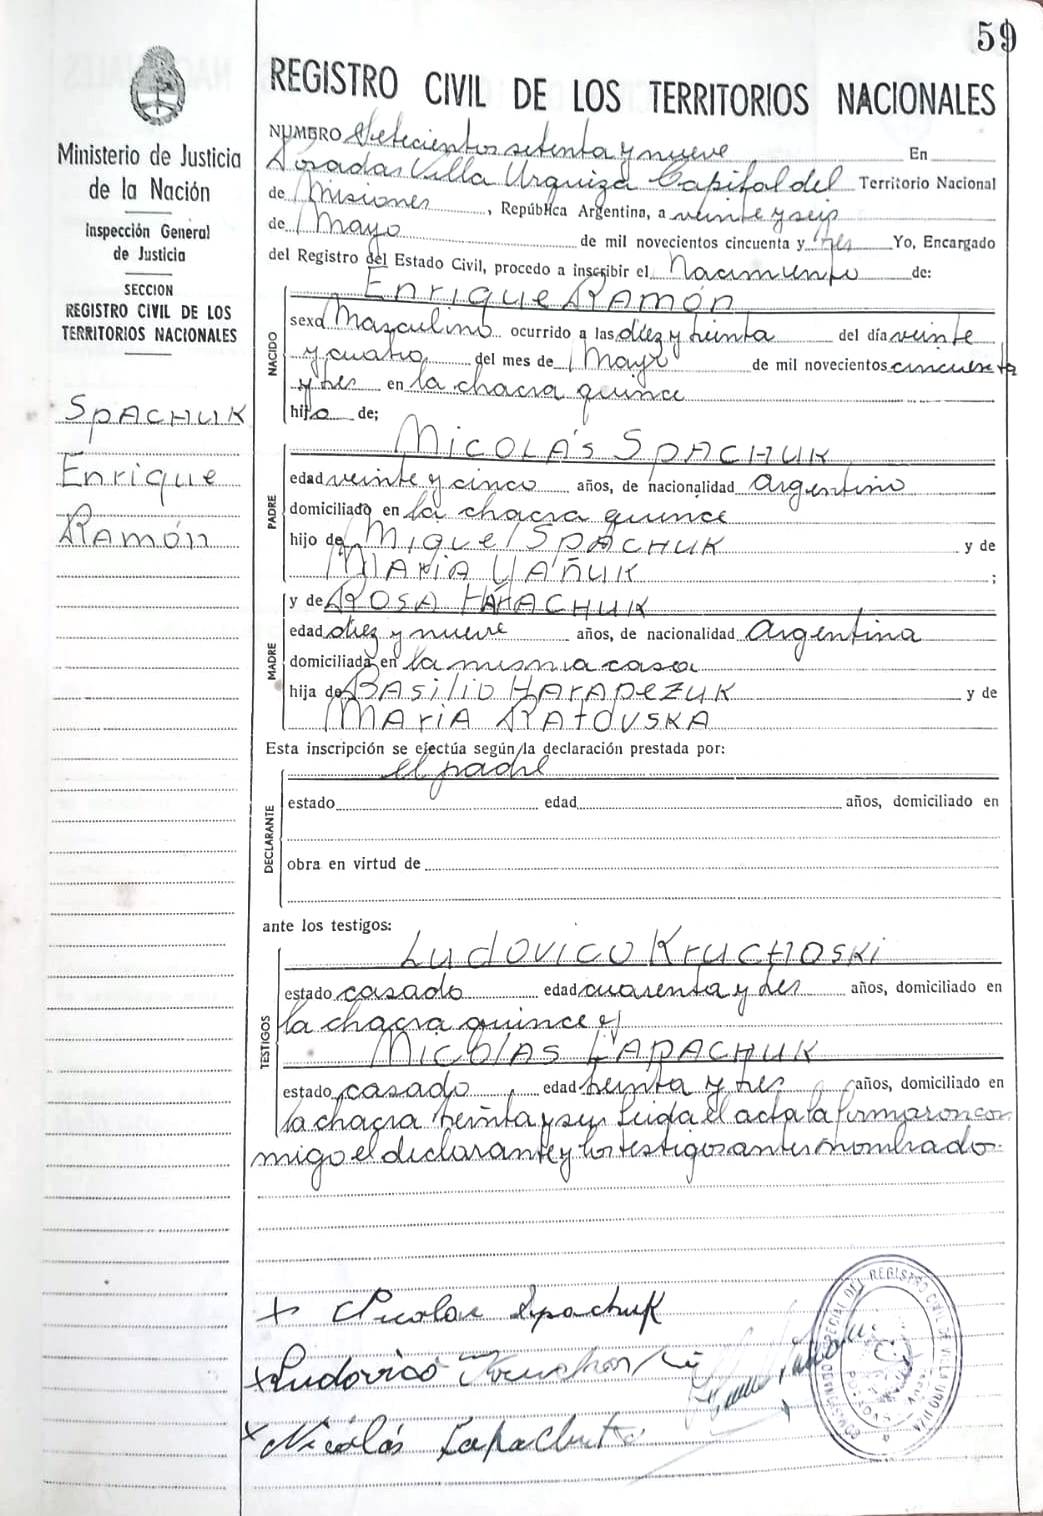 59
Ministerio de Justicia
de la Nación
Inspección General
de Justicia
SECCION
REGISTRO CIVIL DE LOS
TERRITORIOS NACIONALES
Spachuk
Enrique
Ramón
REGISTRO CIVIL DE LOS TERRITORIOS NACIONALES
NUMERO Setecientos setenta y nueve En
Posadas Villa Urquiza Capital del Territorio Nacional
de Misiones, República Argentina, a veinte y seis
de Mayo de mil novecientos cincuenta y tres Yo, Encargado
del Registro del Estado Civil, procedo a inscribir el Nacimiento de:
Enrique Ramón
NACIDO
sexo Masculino ocurrido a las diez y treinta del día veinte
y cuatro del mes de Mayo de mil novecientos cincuenta
y tres en la chacra quince
hijo de;
Nicolás Spachuk
PADRE
edad veinte y cinco años, de nacionalidad argentino
domiciliado en la chacra quince
hijo de Miguel Spachuk y de
Maria Yañuk ;
y de Rosa Harachuk
MADRE
edad diez y nueve años, de nacionalidad argentina
domiciliada en la misma casa
hija de Basilio Harapezuk y de
Maria Ratovska
Esta inscripción se efectúa según la declaración prestada por:
el padre
DECLARANTE
estado edad años, domiciliado en
obra en virtud de
ante los testigos:
Ludovico Kruchoski
TESTIGOS
estado casado edad cuarenta y tres años, domiciliado en
la chacra quince y
Nicolas Lapachuk
estado casado edad treinta y tres años, domiciliado en
la chacra treinta y seis Leida el acta la firmaron con
migo el declarante y los testigos antes nombrado
x Nicolas Spachuk
x Ludovico Kruchoski
x Nicolás Lapachuk
REGISTRO CIVIL DE VILLA URQUIZA
POSADAS